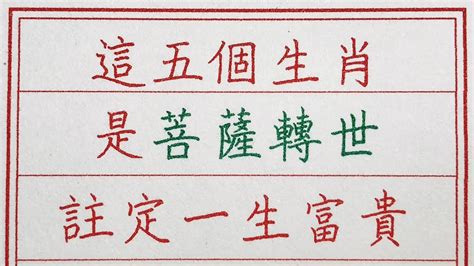 這五個生肖
是菩薩轉世
註定一生富貴